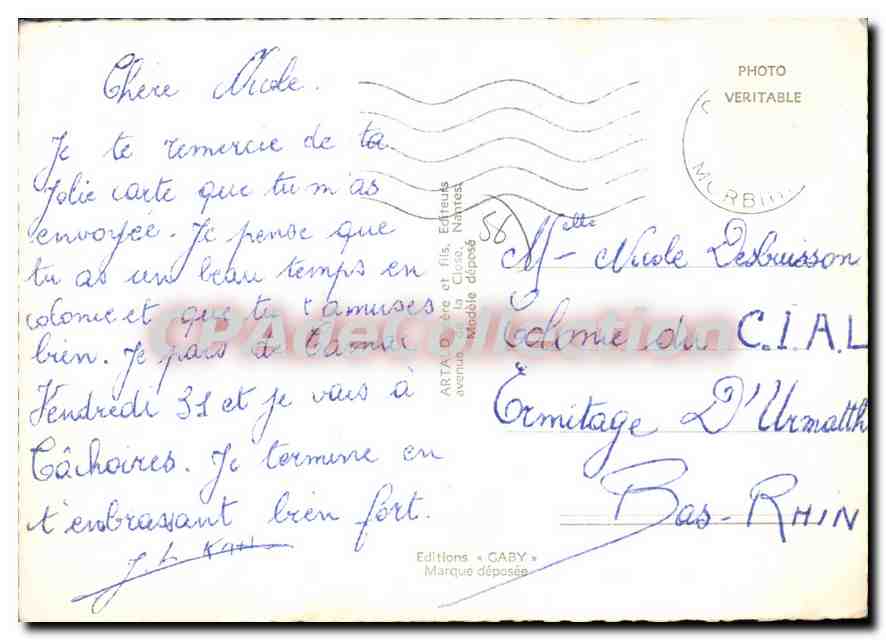 Chère Nicole.
Je te remercie de ta
jolie carte que tu m'as
envoyée. Je pense que
tu as un beau temps en
colonie et que tu t'amuses
bien. Je pars à
Vendredi 31 et je vais à
Je termine en
t'enbrassant bien fort.
J L Kahl
ARTAUD Père et fils, Editeurs
avenue de la Close, Nantes
Modèle déposé
Editions « GABY »
Marque déposée
PHOTO
VERITABLE
MORBIHAN
56
Melle Nicole Desbuisson
Colonie du C.I.A.L
Ermitage D'Urmatth
Bas-RHIN
CPAdeCollection